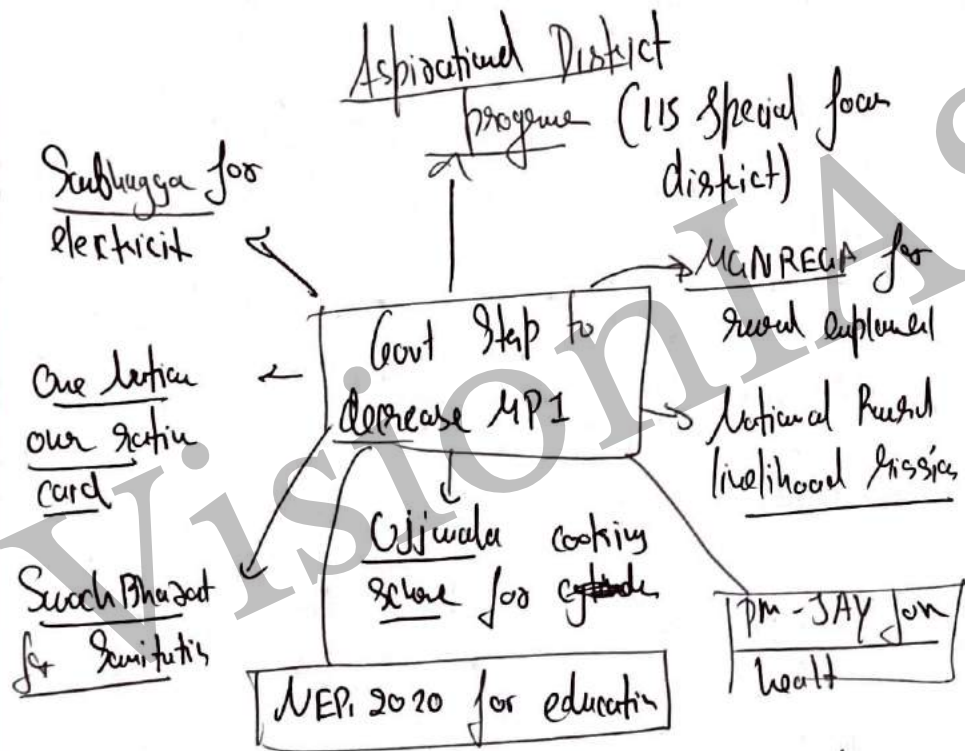 Aspirational District
progeme (115 Special focus
district)
Saubhagya for
electricit
MGNREGA for
rural
Govt Step to
decrease MPI
One Nation
our ration
card
National Rural
livelihood Mission
Ujjwala cooking
scheme for
Swach Bharat
for Sanitatin
pm-JAY for
healt
NEP, 2020 for education
VisionIAS